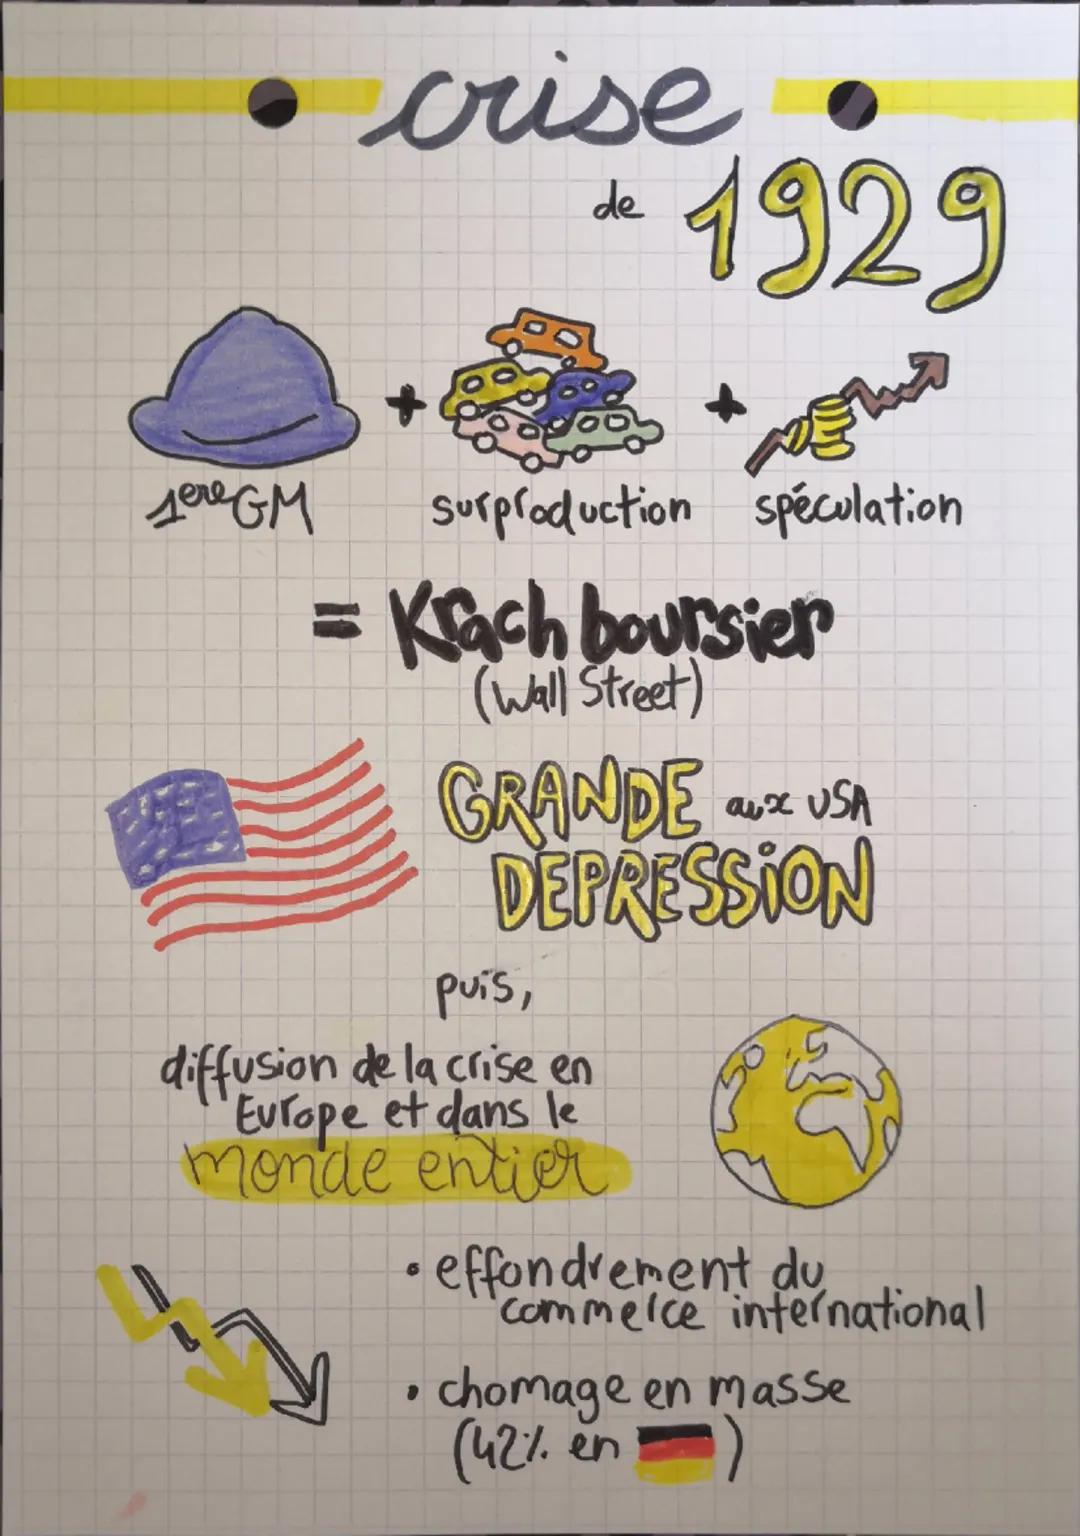 crise
de 1929
+ +
1ere GM surproduction spéculation
= Krach boursier
(Wall Street)
GRANDE aux USA
DEPRESSiON
puis,
diffusion de la crise en
Europe et dans le
monde entier
• effondrement du
commerce international
• chomage en masse
(42% en )